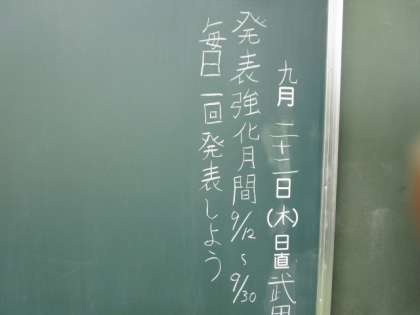 九月二十二日(木)日直武田
発表強化月間9/12〜9/30
毎日一回発表しよう